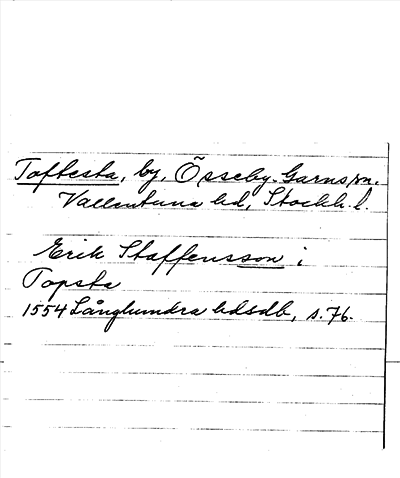 Toftesta, by, Össeby-Garns sn.
Vallentuna hd, Stockh. l.
Erik Staffensson i
Topsta
1554 Långhundra hdsdb, s. 76.